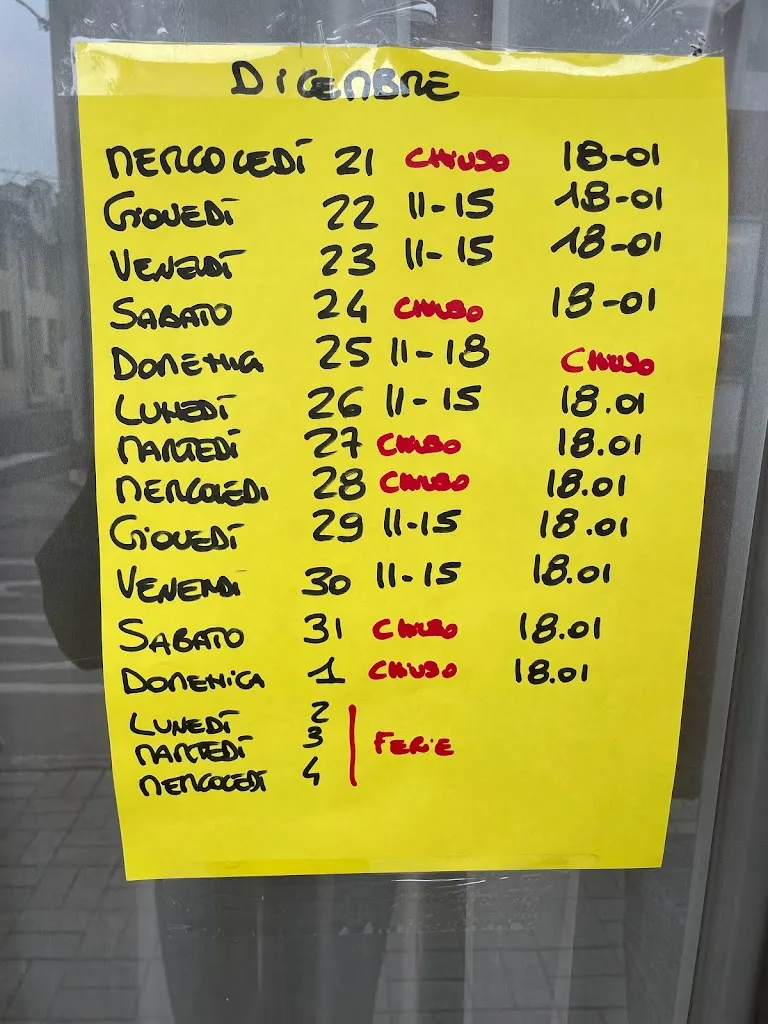 DICEMBRE
MERCOLEDÌ 21 CHIUSO 18-01
GIOVEDÌ 22 11-15 18-01
VENERDÌ 23 11-15 18-01
SABATO 24 CHIUSO 18-01
DOMENICA 25 11-18 CHIUSO
LUNEDÌ 26 11-15 18.01
MARTEDÌ 27 CHIUSO 18.01
MERCOLEDI 28 CHIUSO 18.01
GIOVEDÌ 29 11-15 18.01
VENERDI 30 11-15 18.01
SABATO 31 CHIUSO 18.01
DOMENICA 1 CHIUSO 18.01
LUNEDÌ 2
MARTEDÌ 3 FERIE
MERCOLEDÌ 4